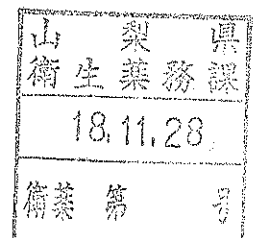 山梨県
衛生薬務課
18.11.28
衛薬 第 号